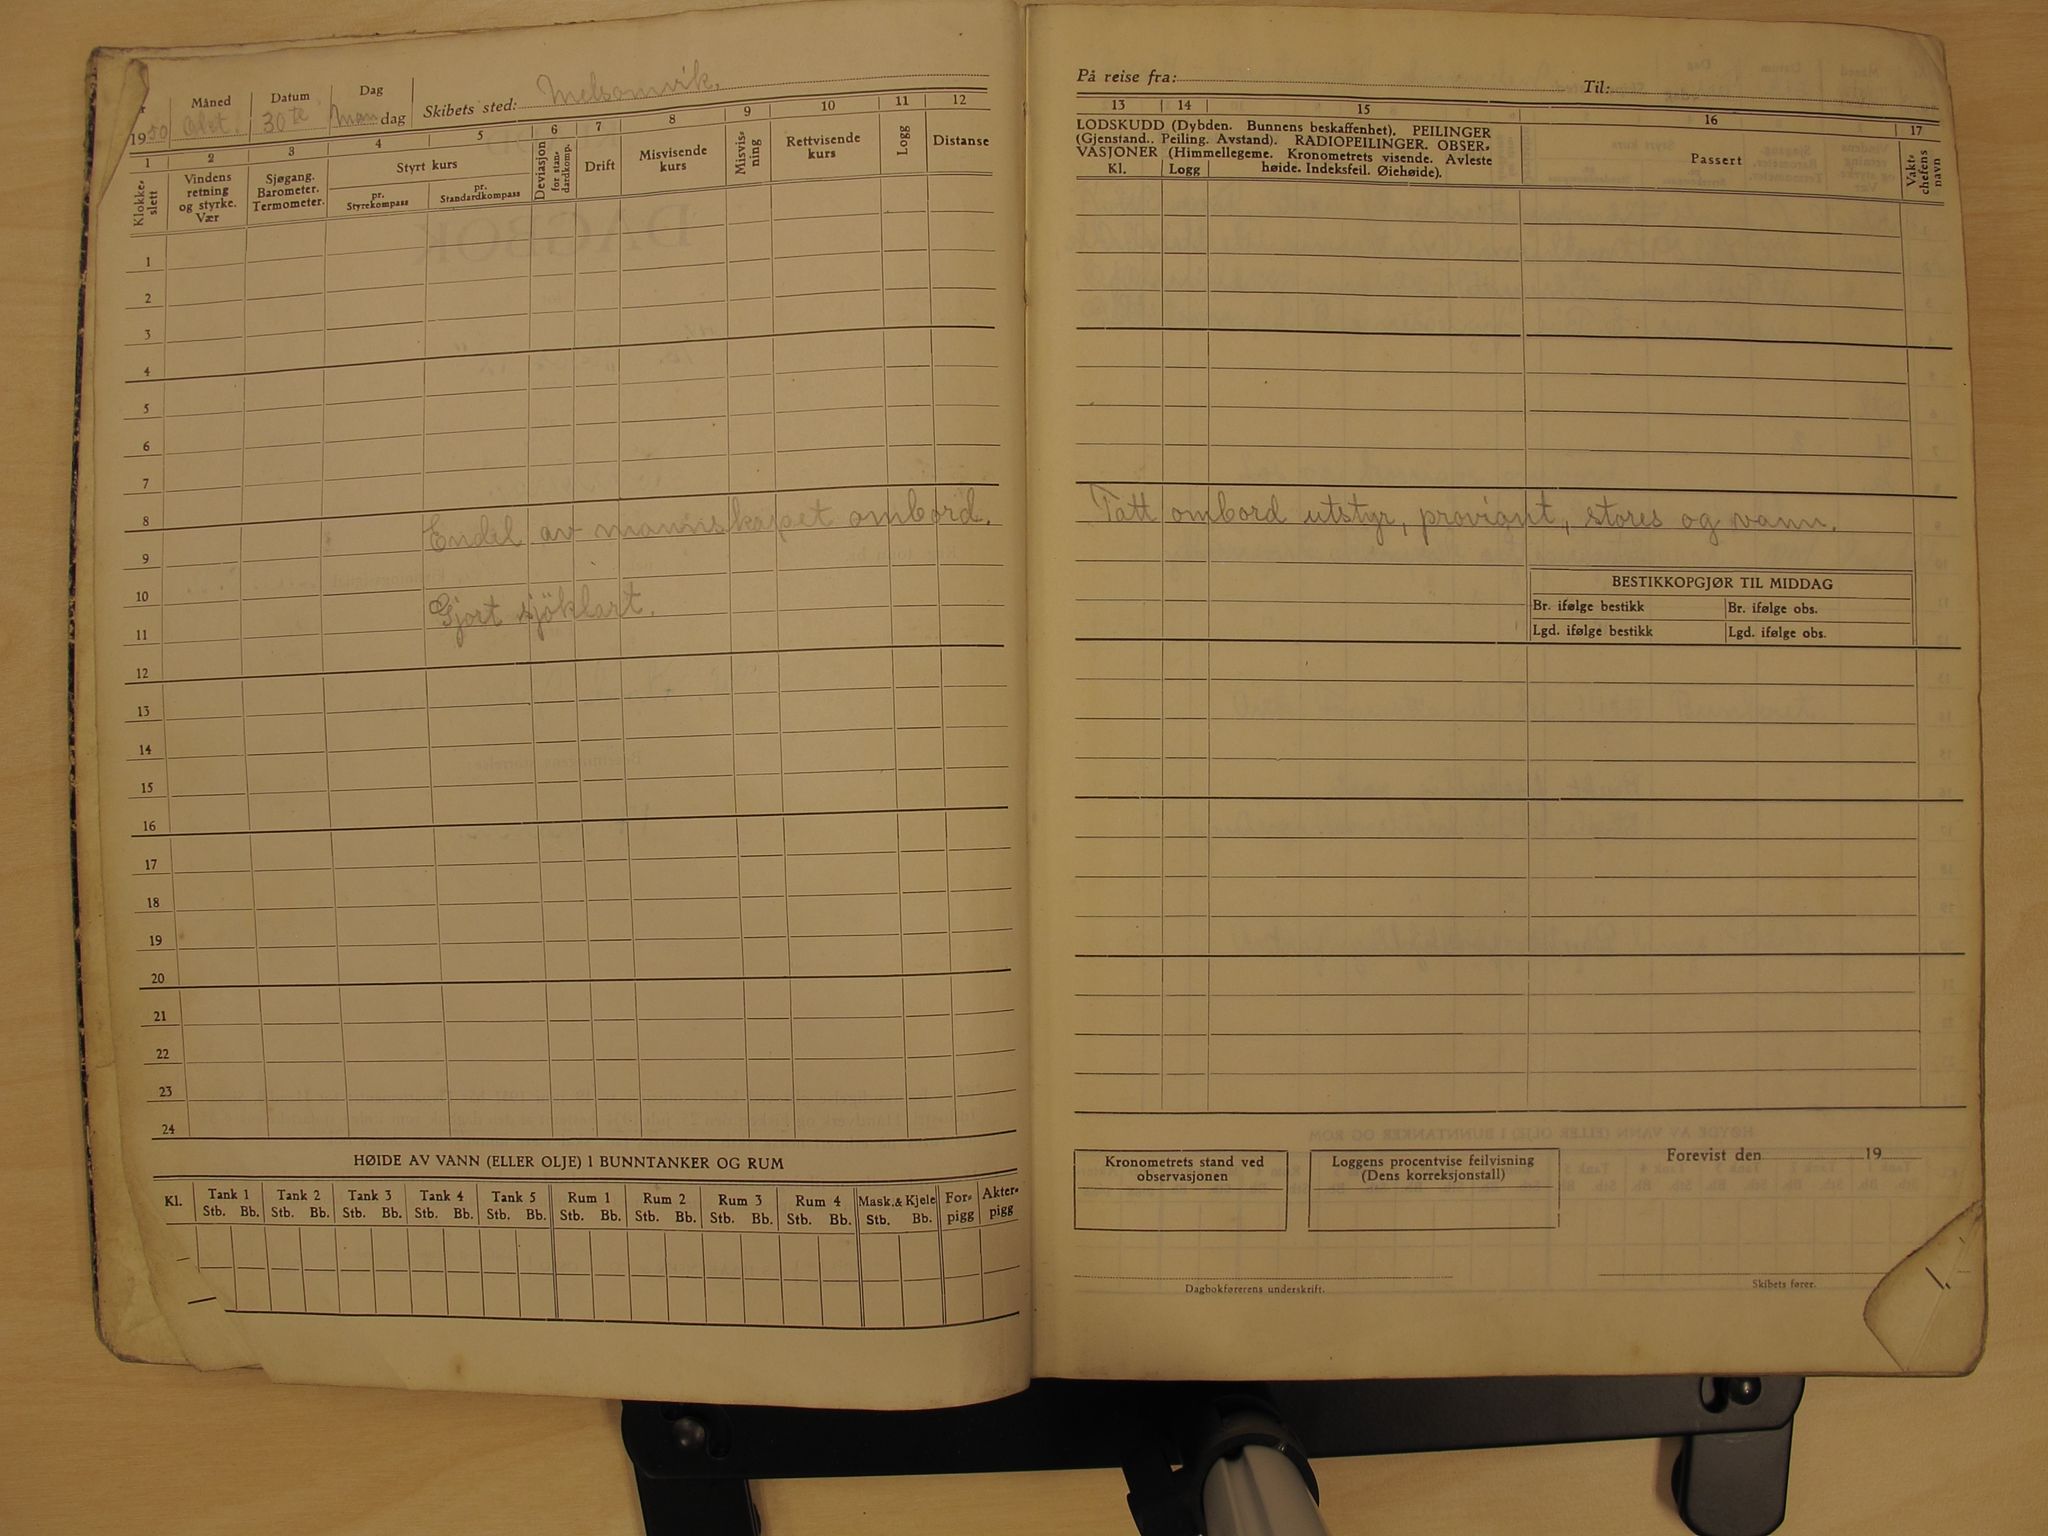 1950 Måned Okt. Datum 30te Dag Mandag Skibets sted: Melsomvik.
1 2 3 4 5 6 7 8 9 10 11 12
Klokke-slett Vindens retning og styrke. Vær Sjøgang. Barometer. Termometer. Styrt kurs pr. Styrekompass pr. Standardkompass Deviasjon for standardkomp. Drift Misvisende kurs Misvisning Rettvisende kurs Logg Distanse
1
2
3
4
5
6
7
8
Endel av mannskapet ombord.
9
10
Gjort sjöklart.
11
12
13
14
15
16
17
18
19
20
21
22
23
24
HØIDE AV VANN (ELLER OLJE) I BUNNTANKER OG RUM
Kl. Tank 1 Tank 2 Tank 3 Tank 4 Tank 5 Rum 1 Rum 2 Rum 3 Rum 4 Mask. & Kjele For-pigg Akter-pigg
Stb. Bb. Stb. Bb. Stb. Bb. Stb. Bb. Stb. Bb. Stb. Bb. Stb. Bb. Stb. Bb. Stb. Bb. Stb. Bb.
På reise fra: Til:
13 14 15 16 17
LODSKUDD (Dybden. Bunnens beskaffenhet). PEILINGER
(Gjenstand.. Peiling. Avstand). RADIOPEILINGER. OBSER-
VASJONER (Himmellegeme. Kronometrets visende. Avleste
Kl. Logg høide. Indeksfeil. Øiehøide).
Passert
Vakt-chefens navn
Tatt ombord utstyr, proviant, stores og vann.
BESTIKKOPGJØR TIL MIDDAG
Br. ifølge bestikk Br. ifølge obs.
Lgd. ifølge bestikk Lgd. ifølge obs.
Kronometrets stand ved
observasjonen
Loggens procentvise feilvisning
(Dens korreksjonstall)
Forevist den 19
Dagbokførerens underskrift.
Skibets fører.
1.